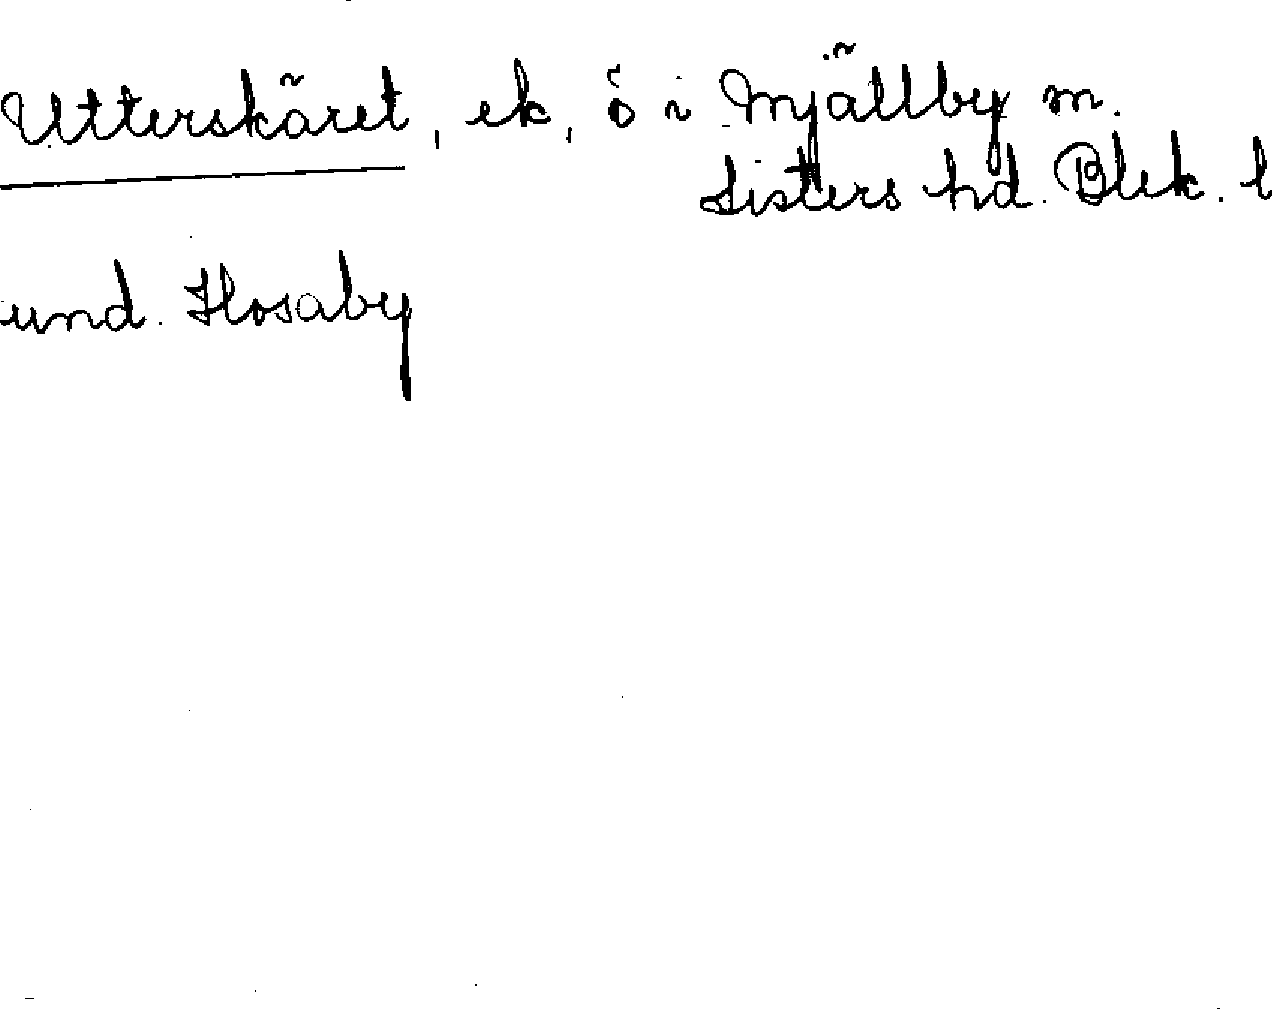 Utterskäret, ek, ö i Mjällby sn.
Listers hd. Blek. l
und. Hosaby